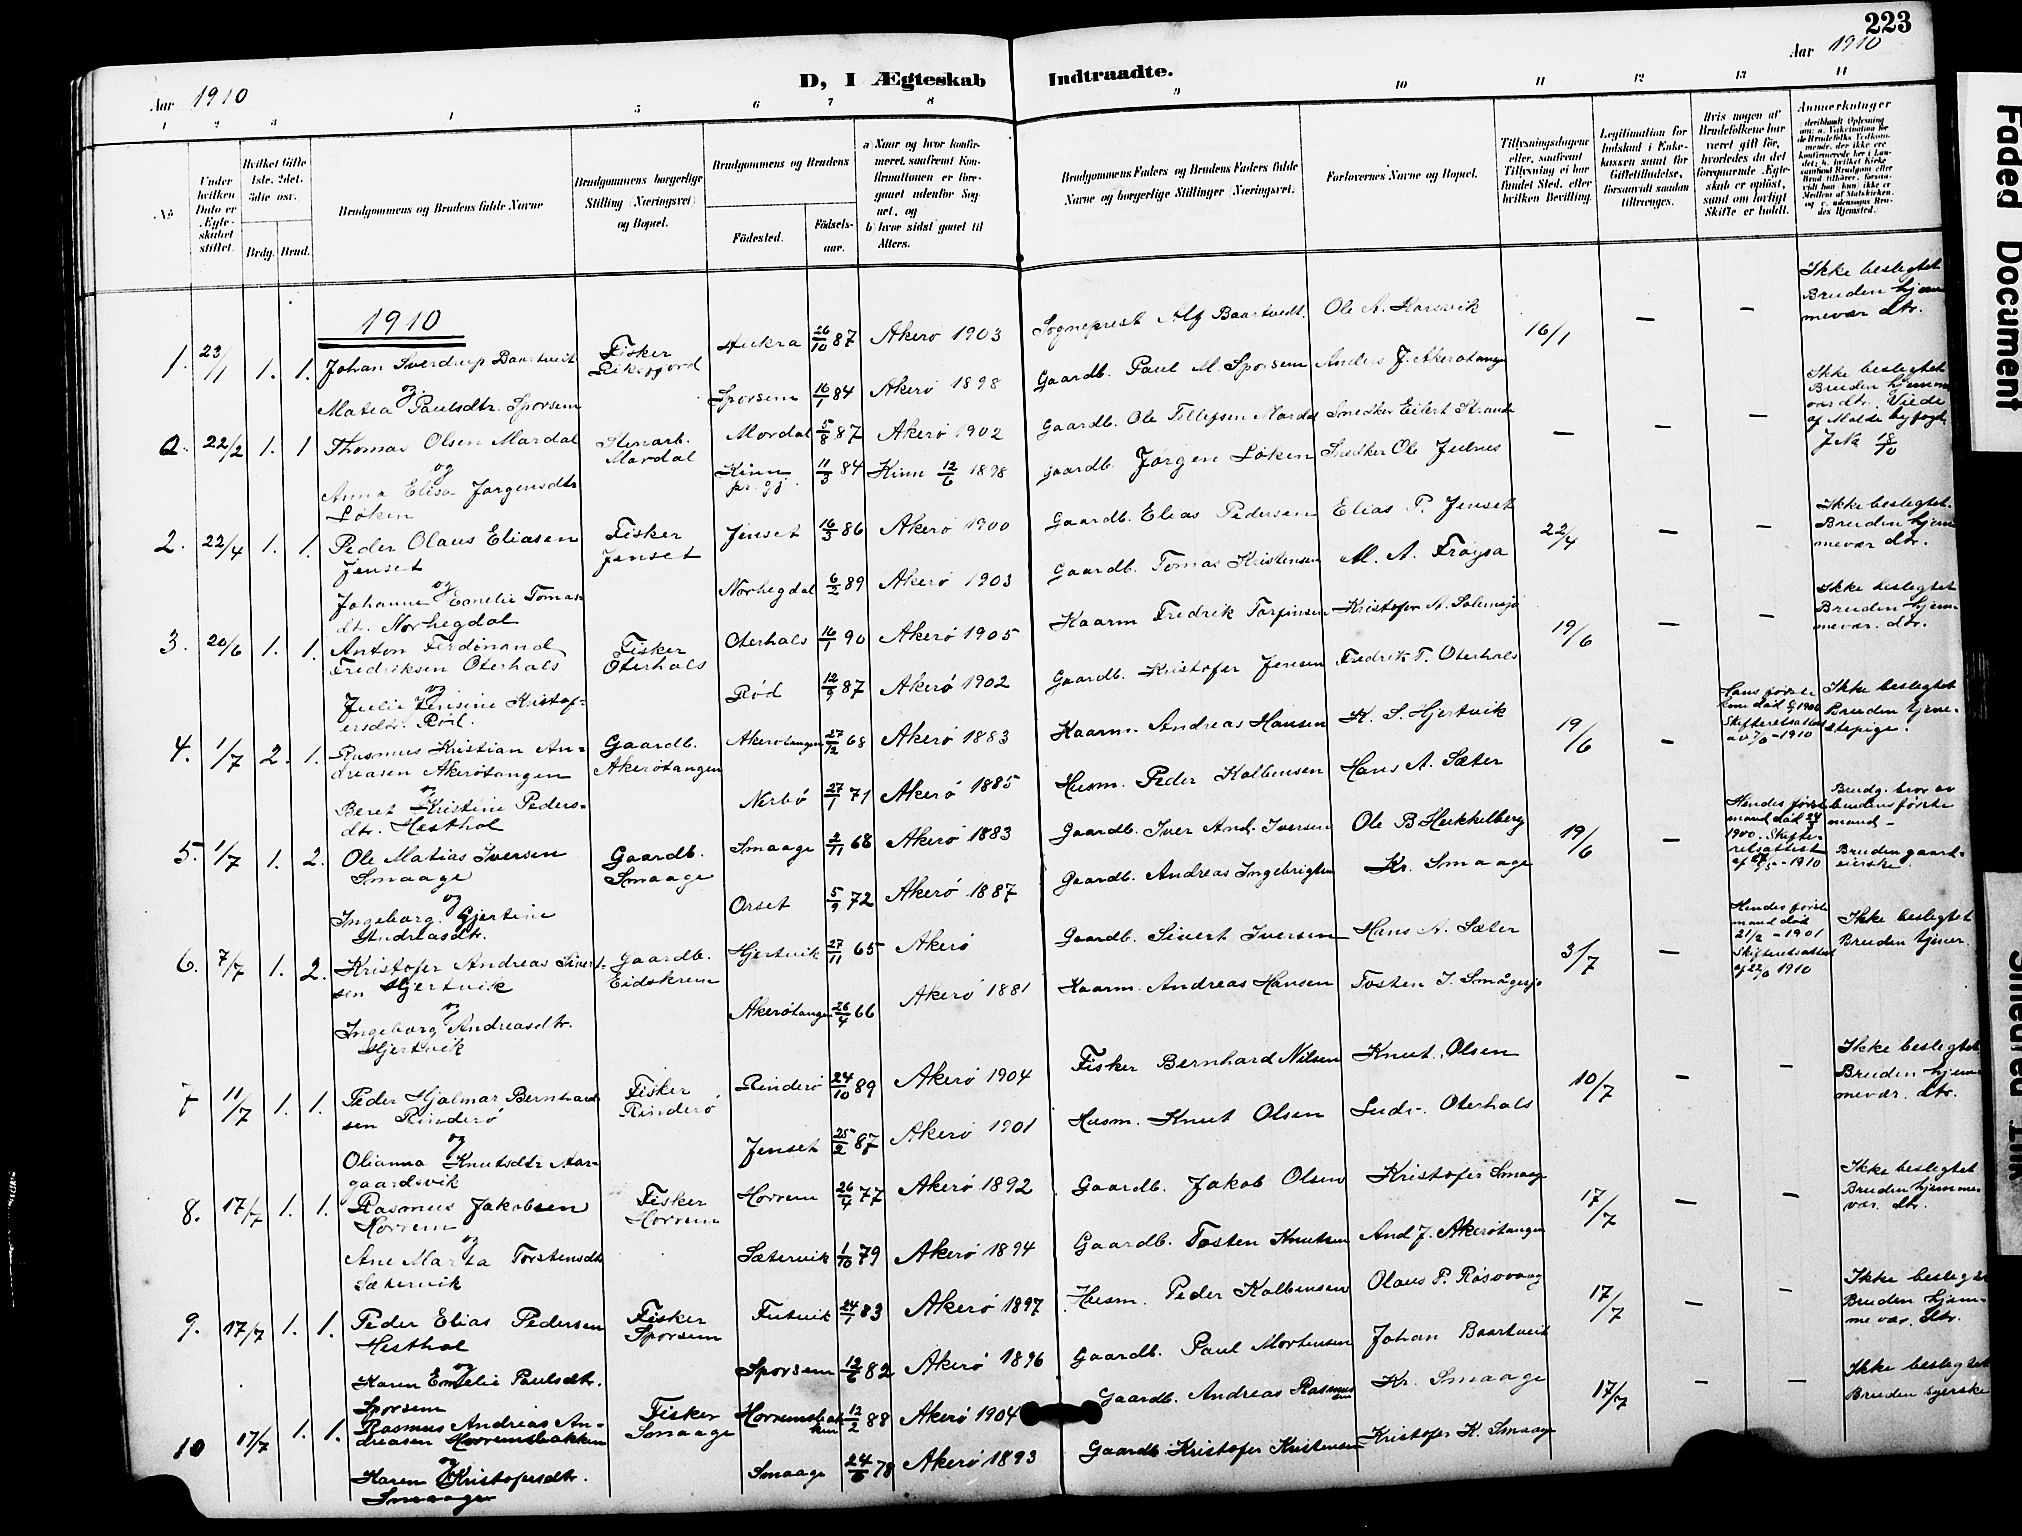 223
Aar 1910
D, I Ægteskab Indtraadte.
Aar 1910
1 2 3 4 5 6 7 8 9 10 11 12 13 14
No
Under hvilken Dato er Ægteskabet stiftet.
Hvilket Gifte 1ste, 2det, 3die osv.
Brdg. Brud.
Brudgommens og Brudens fulde Navne
Brudgommens borgerlige Stilling (Næringsvei) og Bopæl.
Brudgommens og Brudens
Födested.
Födselsaar.
a) Naar og hvor konfirmeret, saafremt Konfirmationen er foregaaet udenfor Sognet, og
b) hvor sidst gaaet til Alters.
Brudgommens Faders og Brudens Faders fulde Navne og borgerlige Stillinger (Næringsvei).
Forlovernes Navne og Bopæl.
Tillysningsdagene eller, saafremt Tillysning ei har fundet Sted, efter hvilken Bevilling.
Legitimation for Indskud i Enkekassen samt for Giftetilladelse, forsaavidt saadan tiltrænges.
Hvis nogen af Brudefolkene har været gift før, hvorledes da det foregaaende Ægteskab er opløst, samt om lovligt Skifte er holdt.
Anmærkninger
1910
1. 23/1 1. 1. Johan Sverdrup Baartveit Fisker Aukra 26/10 87 Akerø 1903 Sogneprest Alf Baartvedt. Ole A. Harsvik 16/1 — — Ikke beslegtet Bruden hjemmevær. dtr.
og
Matea Paulsdtr. Sporsem Sporsem 16/1 84 Akerø 1898 Gaardb. Paul M. Sporsem Anders J. Akerøtangen
22/2 1. 1 Thomas Olsen Mardal Stenarb. Mardal Mordal 5/8 87 Akerø 1902 Gaardb. Ole Tollefsen Mardal Snedker Eilert Strande — — — Ikke beslegtet
og
Anna Elisa Jørgensdtr Løken Kinn pr. gj. 11/3 84 Kinn 12/6 1898 Gaardb. Jørgen Løken Snedker Ole
2. 22/4 1. 1. Peder Olaus Eliasen Jenset Fisker Jenset Jenset 16/3 86 Akerø 1900 Gaardb. Elias Pedersen Elias P. Jenset 22/4 — — Ikke beslegtet. Bruden hjemmevær. dtr.
og
Johanne Emelie Tomasdtr. Norhegdal Norhegdal 6/2 89 Akerø 1903 Gaardb. Tomas Kristensen M. A. Frøysa
3. 20/6 1. 1. Anton Ferdinand Fredriksen Oterhals Fisker Oterhals Oterhals 16/1 90 Akerø 1905 Kaarm Fredrik Torfinsen Kristofer A. Solemsjø 19/6 — — Ikke beslegtet Bruden hjemmevær. dtr.
og
Julie Jensine Kristofersdtr. Rød. Rød 12/9 87 Akerø 1902 Gaardb. Kristofer Jensen Fredrik T. Oterhals
4. 1/7 2. 1. Rasmus Kristian Andreasen Akerøtangen Gaardb. Akerøtangen Akerøtangen 27/12 68 Akerø 1883 Kaarm. Andreas Hansen K. S. Hjertvik 19/6 — Hans første kone død 1906 Skifteretsattest av 7/6-1910 Ikke beslegtet Bruden tjenestepige.
og
Beret Kristine Pedersdtr. Hesthol Nerbø 27/1 71 Akerø 1885 Husm. Peder Kolbensen Hans A. Sæter
5. 1/7 1. 2. Ole Matias Iversen Smaage Gaardb. Smaage Smaage 2/11 68 Akerø 1883 Gaardb. Iver And. Iversen Ole B Heckkelberg 19/6 — Hendes første mand død 24/ 1900. Skifteretsattest af /5-1910 Brudg. bror av brudens første mand — Bruden gaardeierske.
og
Ingeborg Gjertine Andreasdtr. Orset 5/9 72 Akerø 1887 Gaardb. Andreas Ingebrigtsen Kr. Smaage
6. 7/7 1. 2. Kristofer Andreas Sivertsen Hjertvik Gaardb. Eidskrem Hjertvik 27/11 65 Akerø Gaardb. Sivert Iversen Hans A. Sæter 3/7 — Hendes første mand død 21/2 - 1901 Skifteretsattest af 22/6 1910 Ikke beslegtet Bruden tjener
og
Ingeborg Andreasdtr. Hjertvik Akerøtangen 26/4 66 Akerø 1881 Kaarm. Andreas Hansen Tosten J. Smågesjø
7 11/7 1. 1. Peder Hjalmar Bernhardsen Rinderø Fisker Rinderø Rinderø 24/10 89 Akerø 1904 Fisker Bernhard Nilsen Knut Olsen 10/7 — — Ikke beslegtet Bruden hjemmevær. dtr.
og
Olianna Knutsdtr Aargaardsvik Jenset 25/2 87 Akerø 1901 Husm. Knut Olsen Ludv. Oterhals
8. 17/7 1. 1. Rasmus Jakobsen Horrem Fisker Horrem Horrem 26/4 77 Akerø 1892 Gaardb. Jakob Olsen Kristofer Smaage 17/7 — — Ikke beslegtet Bruden hjemmevær. dtr.
og
Ane Marta Torstensdtr Sætervik Sætervik 1/10 79 Akerø 1894 Gaardb. Tosten Knutsen And J. Akerøtangen
9. 17/7 1. 1. Peder Elias Pedersen Hesthol Fisker Sporsem Futvik 24/1 83 Akerø 1897 Husm. Peder Kolbensen Olaus P. Røsovaag 17/7 — — Ikke beslegtet Bruden hjemmevær. dtr.
og
Karen Emelie Paulsdtr. Sporsem Sporsem 12/6 82 Akerø 1896 Gaardb. Paul Mortensen Johan Baartveit
10 17/7 1. 1. Rasmus Andreas Andreasen Horremsbakken Fisker Smaage Horremsbakken 12/2 88 Akerø 1904 Gaardb. Andreas Rasmussen Kr. Smaage 17/7 — — Ikke beslegtet Bruden syerske
og
Karen Kristofersdtr. Smaage Smaage 24/6 78 Akerø 1893 Gaardb Kristofer Kristensen Kristofer K. Smaage
Faded Document
Smeared Ink